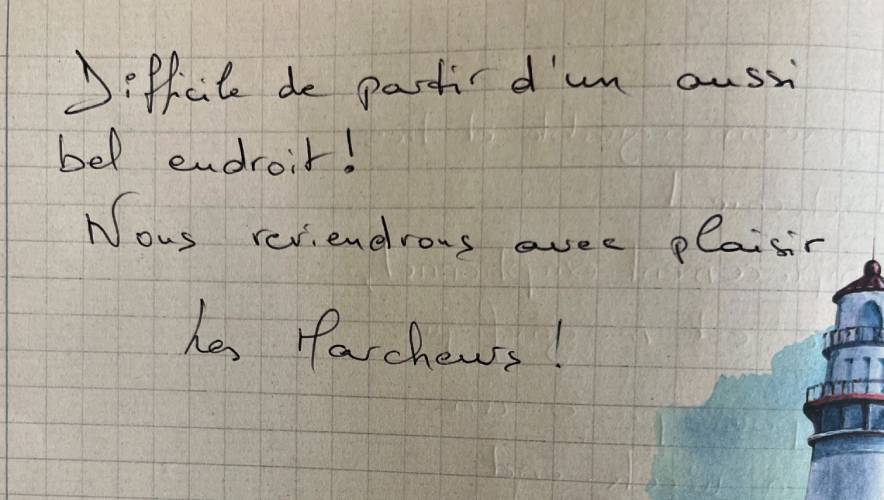 Difficile de partir d'un aussi
bel endroit !
Nous reviendrons avec plaisir
Les Marcheurs !